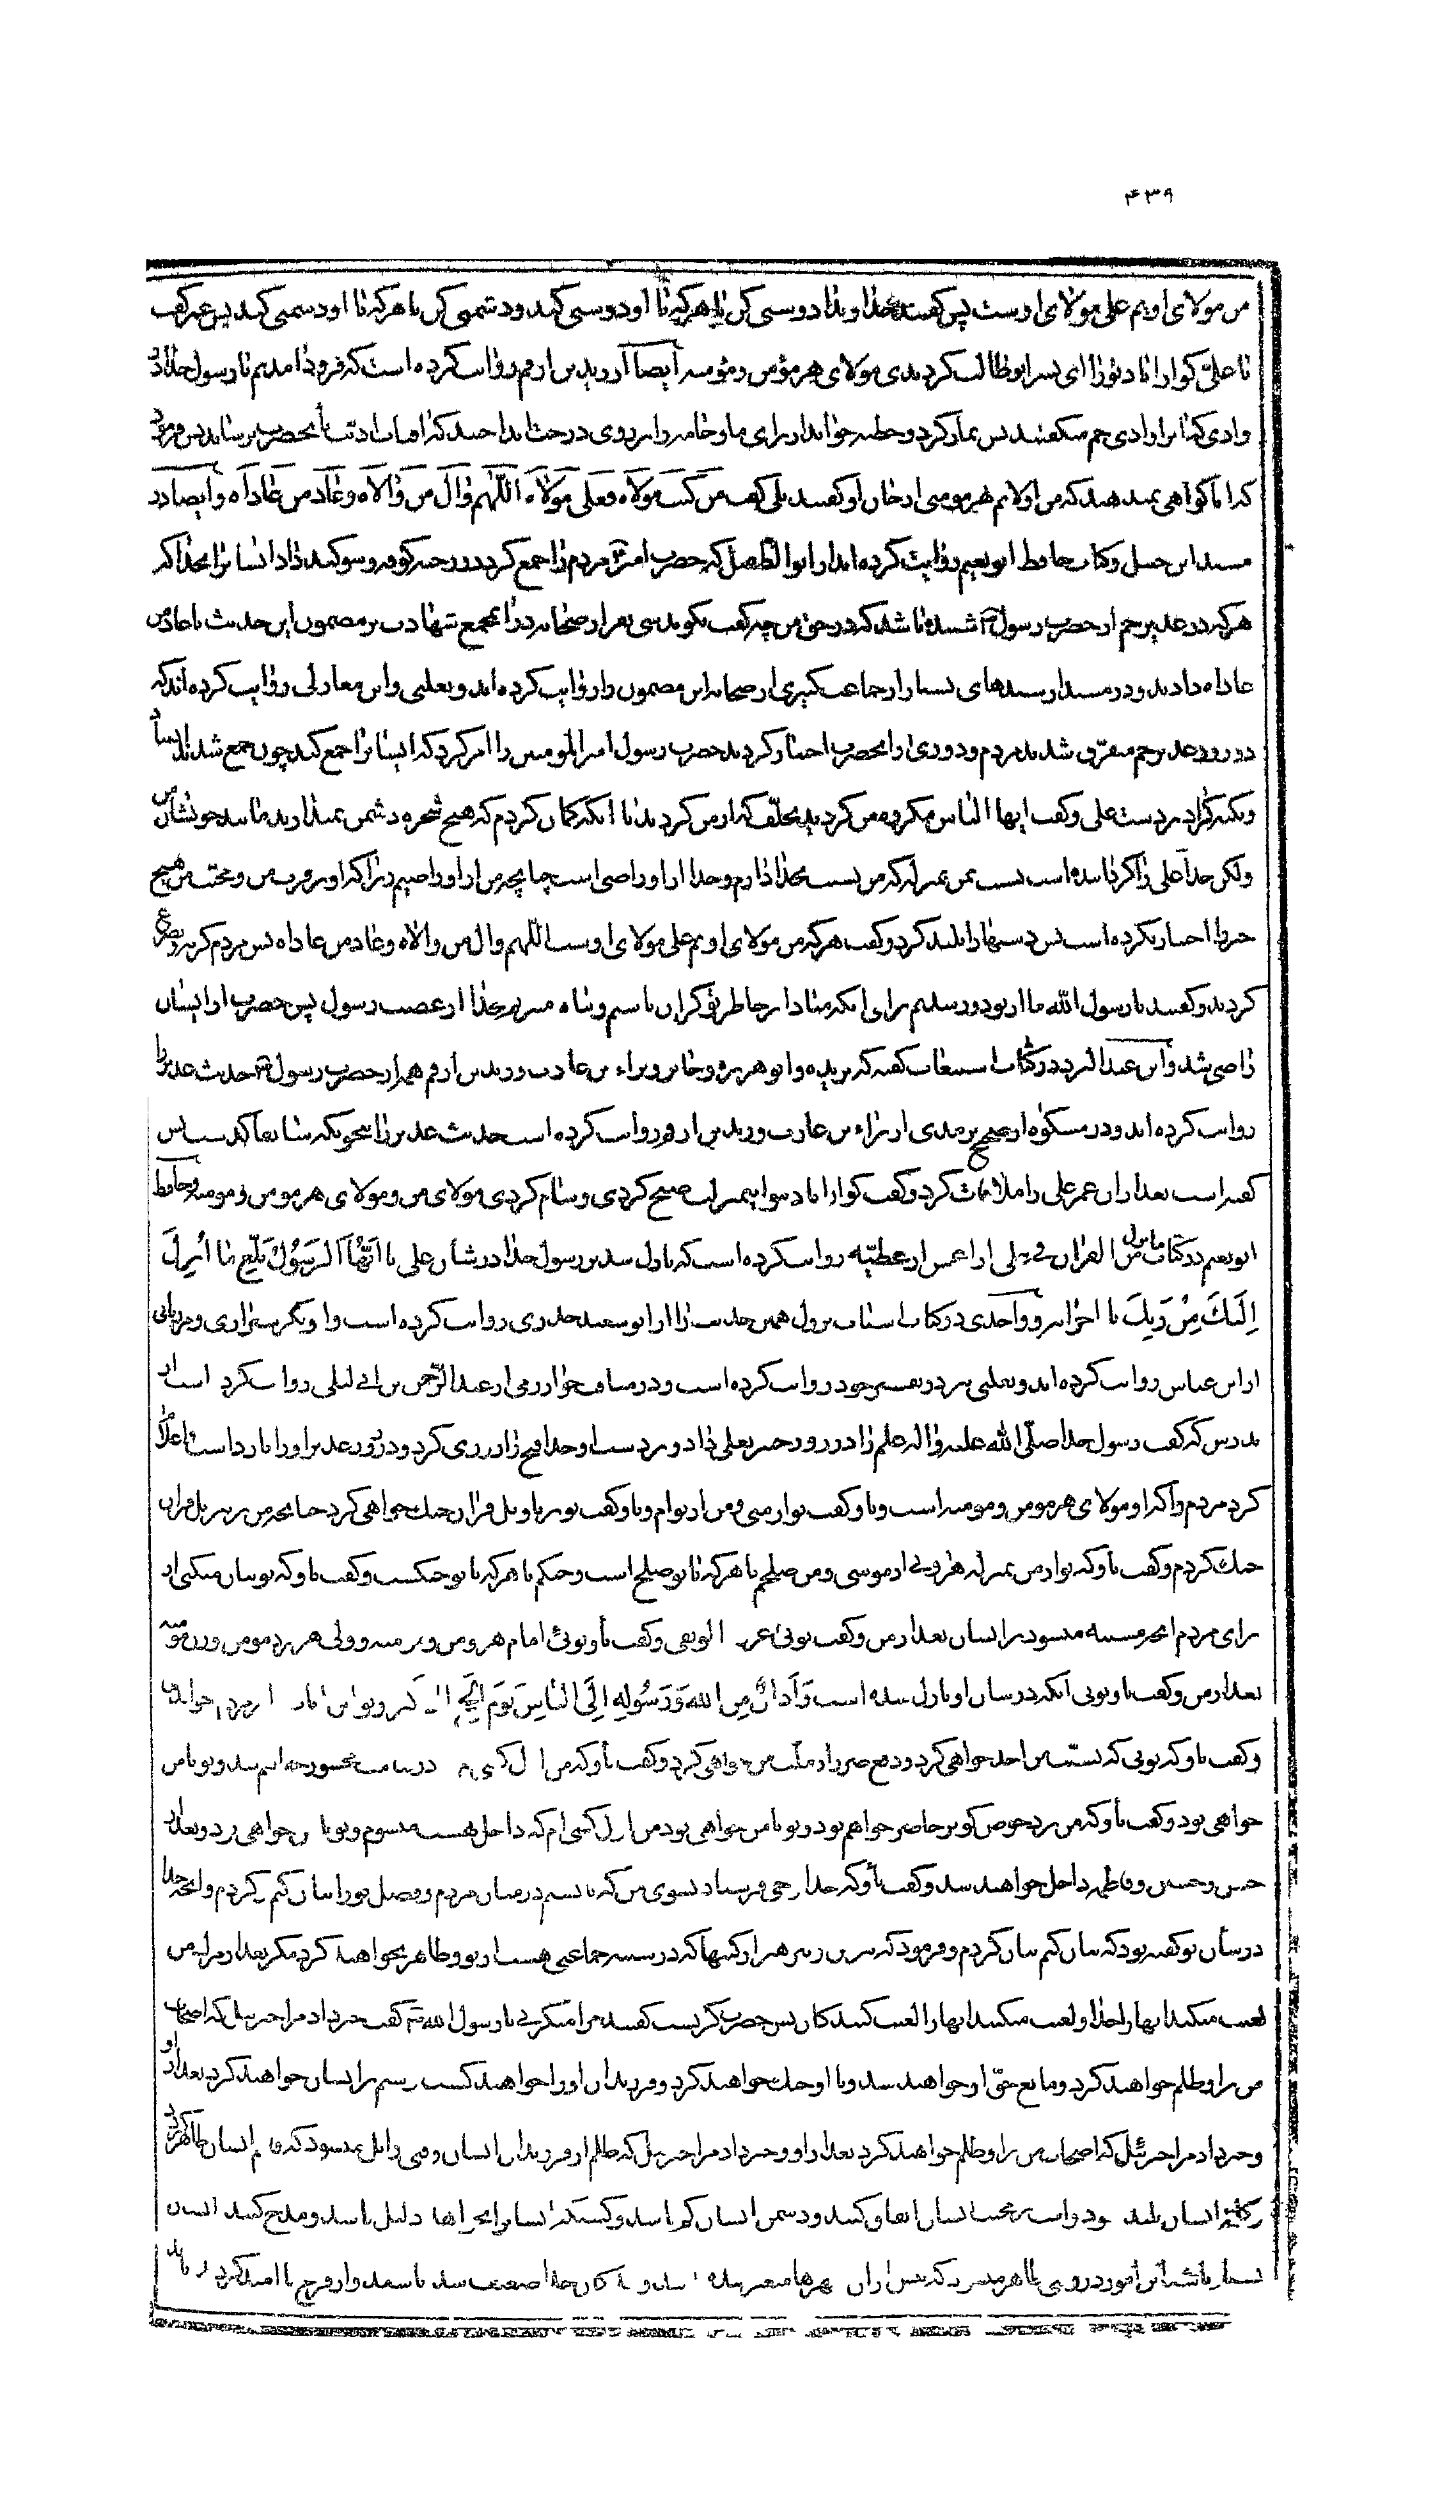 ۴۳۹
من مولای اویم علی مولای اوست پس گفت خداوندا دوستی کن با هرکه با او دوستی کند و دشمنی کن با هرکه با او دشمنی کند پس عمر گفت
یا علی گوارا باد تو را ای پسر ابوطالب گردیدی مولای هر مؤمن و مؤمنه ایضا از زید بن ارقم روایت کرده است که فرود آمدیم با رسول خدا در
وادی که آنرا وادی خم میگفتند پس نماز کرد و خطبه خواند از برای ما و جامه را بر روی درخت انداختند که آفتاب اذیت بآنحضرت نرساند پس فرمود
که آیا گواهی نمیدهید که من اولایم بهر مومنی از جان او گفتند بلی گفت من کنت مولاه فعلی مولاه اللهم وال من والاه وعاد من عاداه وایضا در
مسند ابن حنبل و کتاب حافظ ابو نعیم روایت کرده اند از ابو الطفیل که حضرت امیر مردم را جمع کرد در رحبه کوفه و سوگند داد ایشانرا بخدا که
هرکه در غدیر خم از حضرت رسول شنیده باشد که در حق من چه گفت بگوید سی نفر از صحابه در آن مجمع شهادت بر مضمون این حدیث با عاد من
عاداه دادند و در مسند از سندهای بسیار از جماعت کثیری از صحابه این مضمون را روایت کرده اند و ثعلبی و ابن مغازلی روایت کرده اند که
در روز غدیر خم متفرق شدند مردم و دوری از آنحضرت اختیار کردند حضرت رسول امیر المومنین را امر کرد که ایشانرا جمع کند چون جمع شدند ایستاد
و تکیه کرد بر دست علی و گفت ایها الناس مکروه من گردید تخلف که از من کردید تا آنکه گمان کردم که هیچ شجره دشمن نمیدارید مانند خویشان من
ولکن خدا علی را گردانیده است نسبت بمن بمنزله که من نسبت بخدا دارم و خدا از او راضی است چنانچه من از او راضیم زیرا که او بر قرب من و محبت من هیچ
چیز را اختیار نکرده است پس دستها را بلند کرد و گفت هرکه من مولای اویم علی مولای اوست اللهم وال من والاه وعاد من عاداه پس مردم گریه و تضرع
کردند و گفتند یا رسول الله ما از تو دور نشدیم برای آنکه مبادا بر خاطر تو گران باشیم و پناه میبریم بخدا از غضب رسول پس حضرت از ایشان
راضی شد و ابن عبد البر در کتاب استیعاب گفته که بریده و ابو هریره و جابر و براء بن عازب و زید بن ارقم همه از حضرت رسول حدیث غدیر را
روایت کرده اند و در مشکوة از صحیح ترمذی از براء بن عازب و زید بن ارقم روایت کرده است حدیث غدیر را بنحویکه سابقا گذشت پس
گفته است بعد از آن عمر علی را ملاقات کرد و گفت گوارا باد تو را ای پسر ابو طالب صبح کردی و شام کردی مولای من و مولای هر مومن و مومنه و حافظ
ابو نعیم در کتاب ما نزل من القرآن فی علی از اعمش از عطیه روایت کرده است که نازل شد بر رسول خدا در شأن علی یا ایها الرسول بلغ ما انزل
الیک من ربک تا آخر آیه و واحدی در کتاب اسباب نزول همین حدیث را از ابو سعید خدری روایت کرده است و ابوبکر شیرازی و مرزبانی
از ابن عباس روایت کرده اند و ثعلبی نیز در تفسیر خود روایت کرده است و در مناقب خوارزمی از عبد الرحمن بن ابی لیلی روایت کرده است از
پدرش که گفت رسول خدا صلی الله علیه و اله علم را در روز خیبر بعلی داد و بر دست او خدا فتح را روزی کرد و در روز غدیر او را بازداشت و اعلام
کرد مردم را که او مولای هر مومن و مومنه است و باو گفت تو از منی و من از توام و باو گفت تو بر تاویل قرآن جنگ خواهی کرد چنانچه من بر تنزیل قرآن
جنگ کردم و گفت باو که تو از من بمنزله هارونی از موسی و من صلحم با هرکه با تو صلح است و جنگم با هرکه با تو جنگست و گفت باو که تو بیان میکنی از
برای مردم آنچه مشتبه میشود بر ایشان بعد از من و گفت توئی عروة الوثقی و گفت باو توئی امام هر مومن و مومنه و ولی هر مرد مومن و زن مومنه
بعد از من و گفت باو توئی آنکه در شان او نازل شده است واذان من الله ورسوله الی الناس یوم الحج
و گفت باو که توئی که بسنت من اخذ خواهی کرد و دفع ضرر از ملت من خواهی کرد و گفت باو که من اول کسی ام در قیامت محشور خواهم شد و تو با من
خواهی بود و گفت باو که من نزد حوض کوثر حاضر خواهم بود و تو با من خواهی بود من اول کسی ام که داخل بهشت میشوم و تو با من خواهی بود و بعد از
حسن و حسین و فاطمه داخل خواهند شد و گفت باو که خدا وحی فرستاد بسوی من که بایستم در میان مردم و فضل تو را بیان کنم پس کردم و آنچه خدا
در شأن تو گفته بود که بیان کنم بیان کردم و فرمود که بترس از کینها که در سینه جماعتی هست از تو و ظاهر نخواهند کرد مگر بعد از مردن من
لعنت میکند اینها را خدا و لعنت میکنند اینها را لعنت کنندگان پس حضرت گریست گفتند چرا میگریی یا رسول الله گفت خبر داد مرا جبرئیل که اصحاب
من بر او ظلم خواهند کرد و مانع حق او خواهند شد و با او جنگ خواهند کرد و فرزندان او را خواهند کشت و ستم بر ایشان خواهند کرد بعد از او
و خبر داد مرا جبرئیل که اصحاب من بر او ظلم خواهند کرد بعد از او و خبر داد مرا جبرئیل که ظلم از فرزندان ایشان وقتی زایل میشود که قایم ایشان ظاهر گردد
و کلمه ایشان بلند شود و امت بر محبت ایشان اتفاق کنند و دشمن ایشان کم باشد و